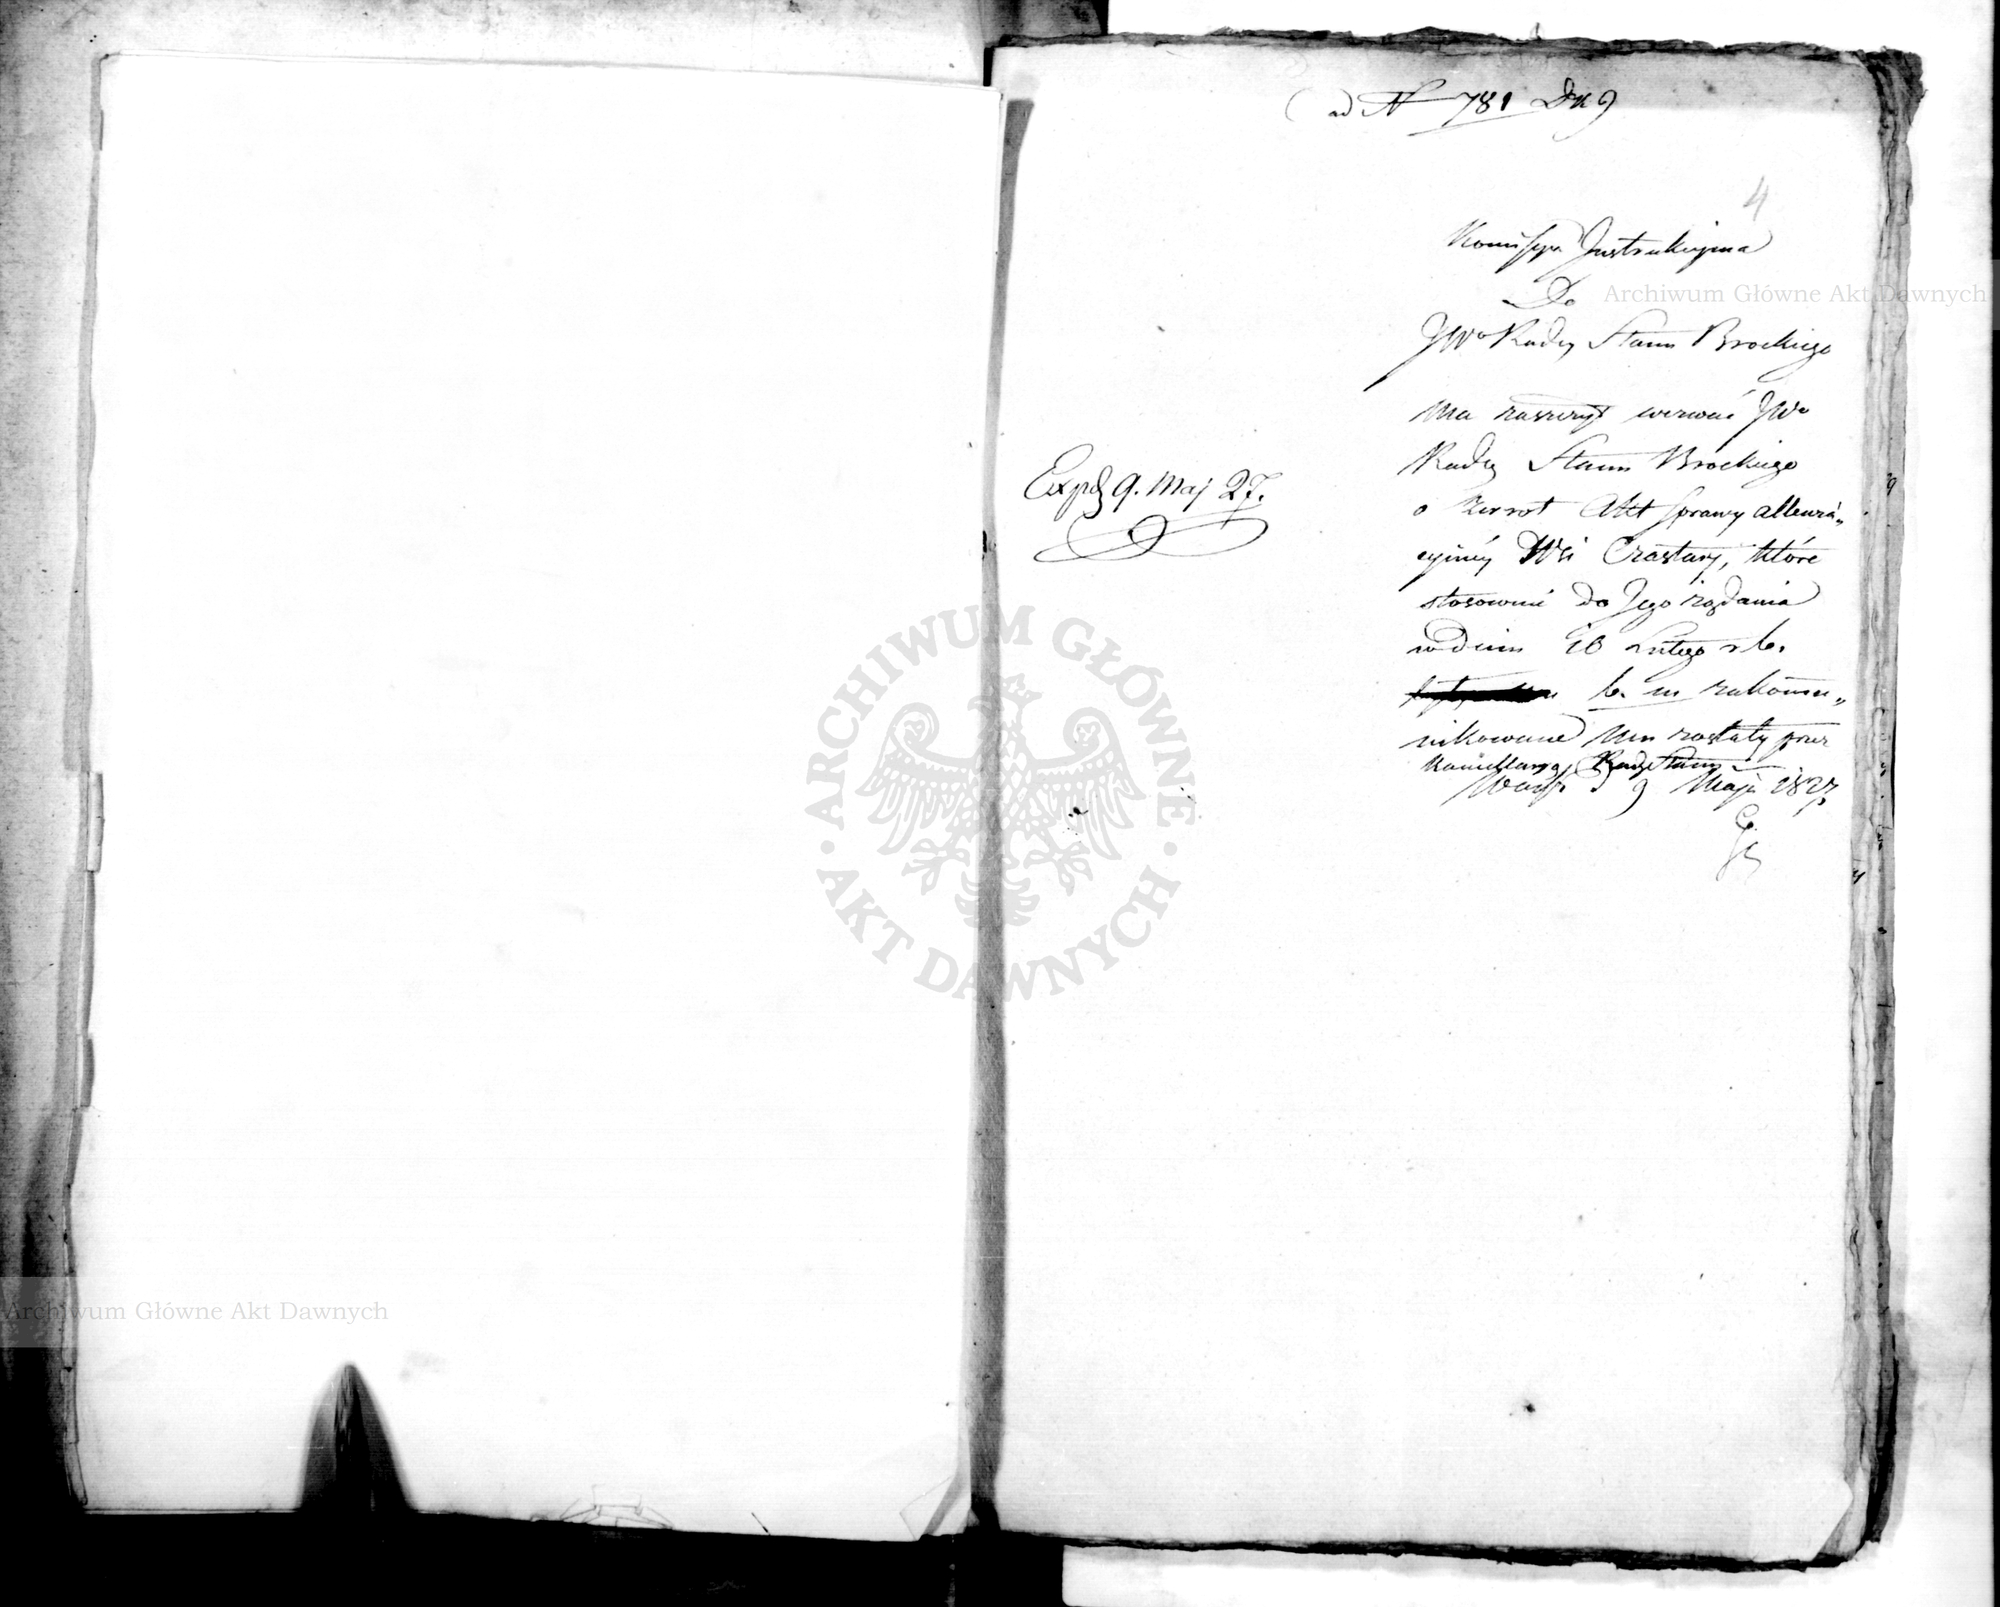 ad N 781 Dk 9
4
Komissya Instrukcyjna
Do
JWo Radcy Stanu Brockiego
Expd 9. Maj 27.
Ma zaszczyt wezwać JWo
Radcę Stanu Brockiego
o zwrot Akt sprawy allewia„
cyjnéy Wsi Czastary, które
stosownie do Jego żądania
w dniu 10 Lutego r. b.
b. m zakomu„
nikowane Mu zostały przez
Kancellaryą Rady Stanu
Warsz. d 9 Maja 1827
Archiwum Główne Akt Dawnych
ARCHIWUM GŁÓWNE
AKT DAWNYCH
Archiwum Główne Akt Dawnych